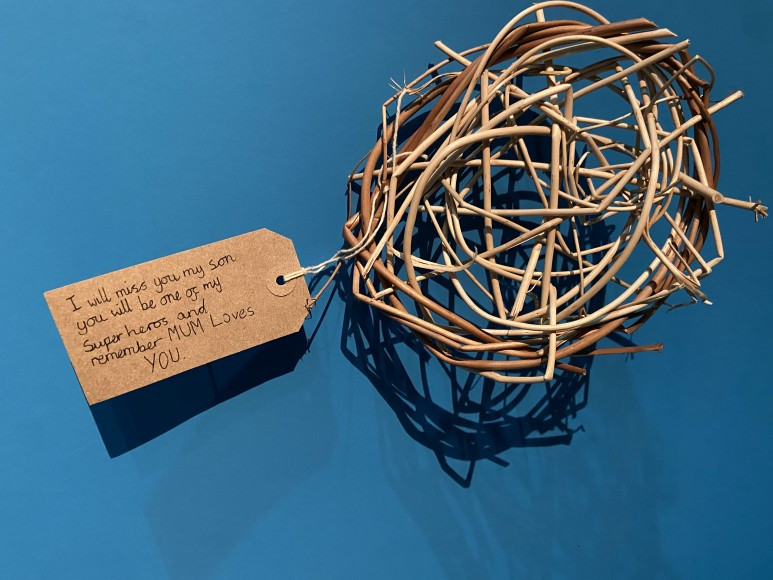 I will miss you my son
you will be one of my
Super heros and
remember MUM Loves
YOU.